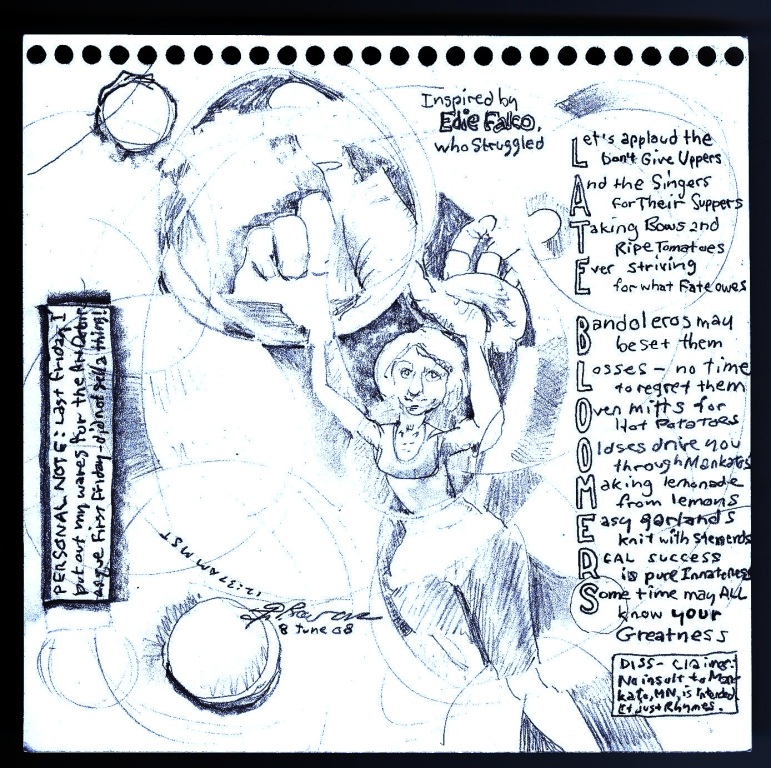 Inspired by
Edie Falco,
who Struggled
Let's applaud the
Don't Give Uppers
And the Singers
for Their Suppers
Taking Bows and
Ripe Tomatoes
Ever striving
for what Fate owes
Bandoleros may
beset them
Losses - no time
to regret them
Oven Mitts for
Hot Potatoes
Oldses drive you
through Mankatos
Making lemonade
from lemons
Easy garlands
knit with stemends
REAL success
is pure Innateness
Some time may ALL
know your
Greatness
DISS- Claimer:
No insult to Man-
kato, MN, is Intended
It just Rhymes.
PERSONAL NOTE: Last Friday, I
put out my wares for the
First Friday - did not sell a thing!
12:37 AM MST
8 June 08